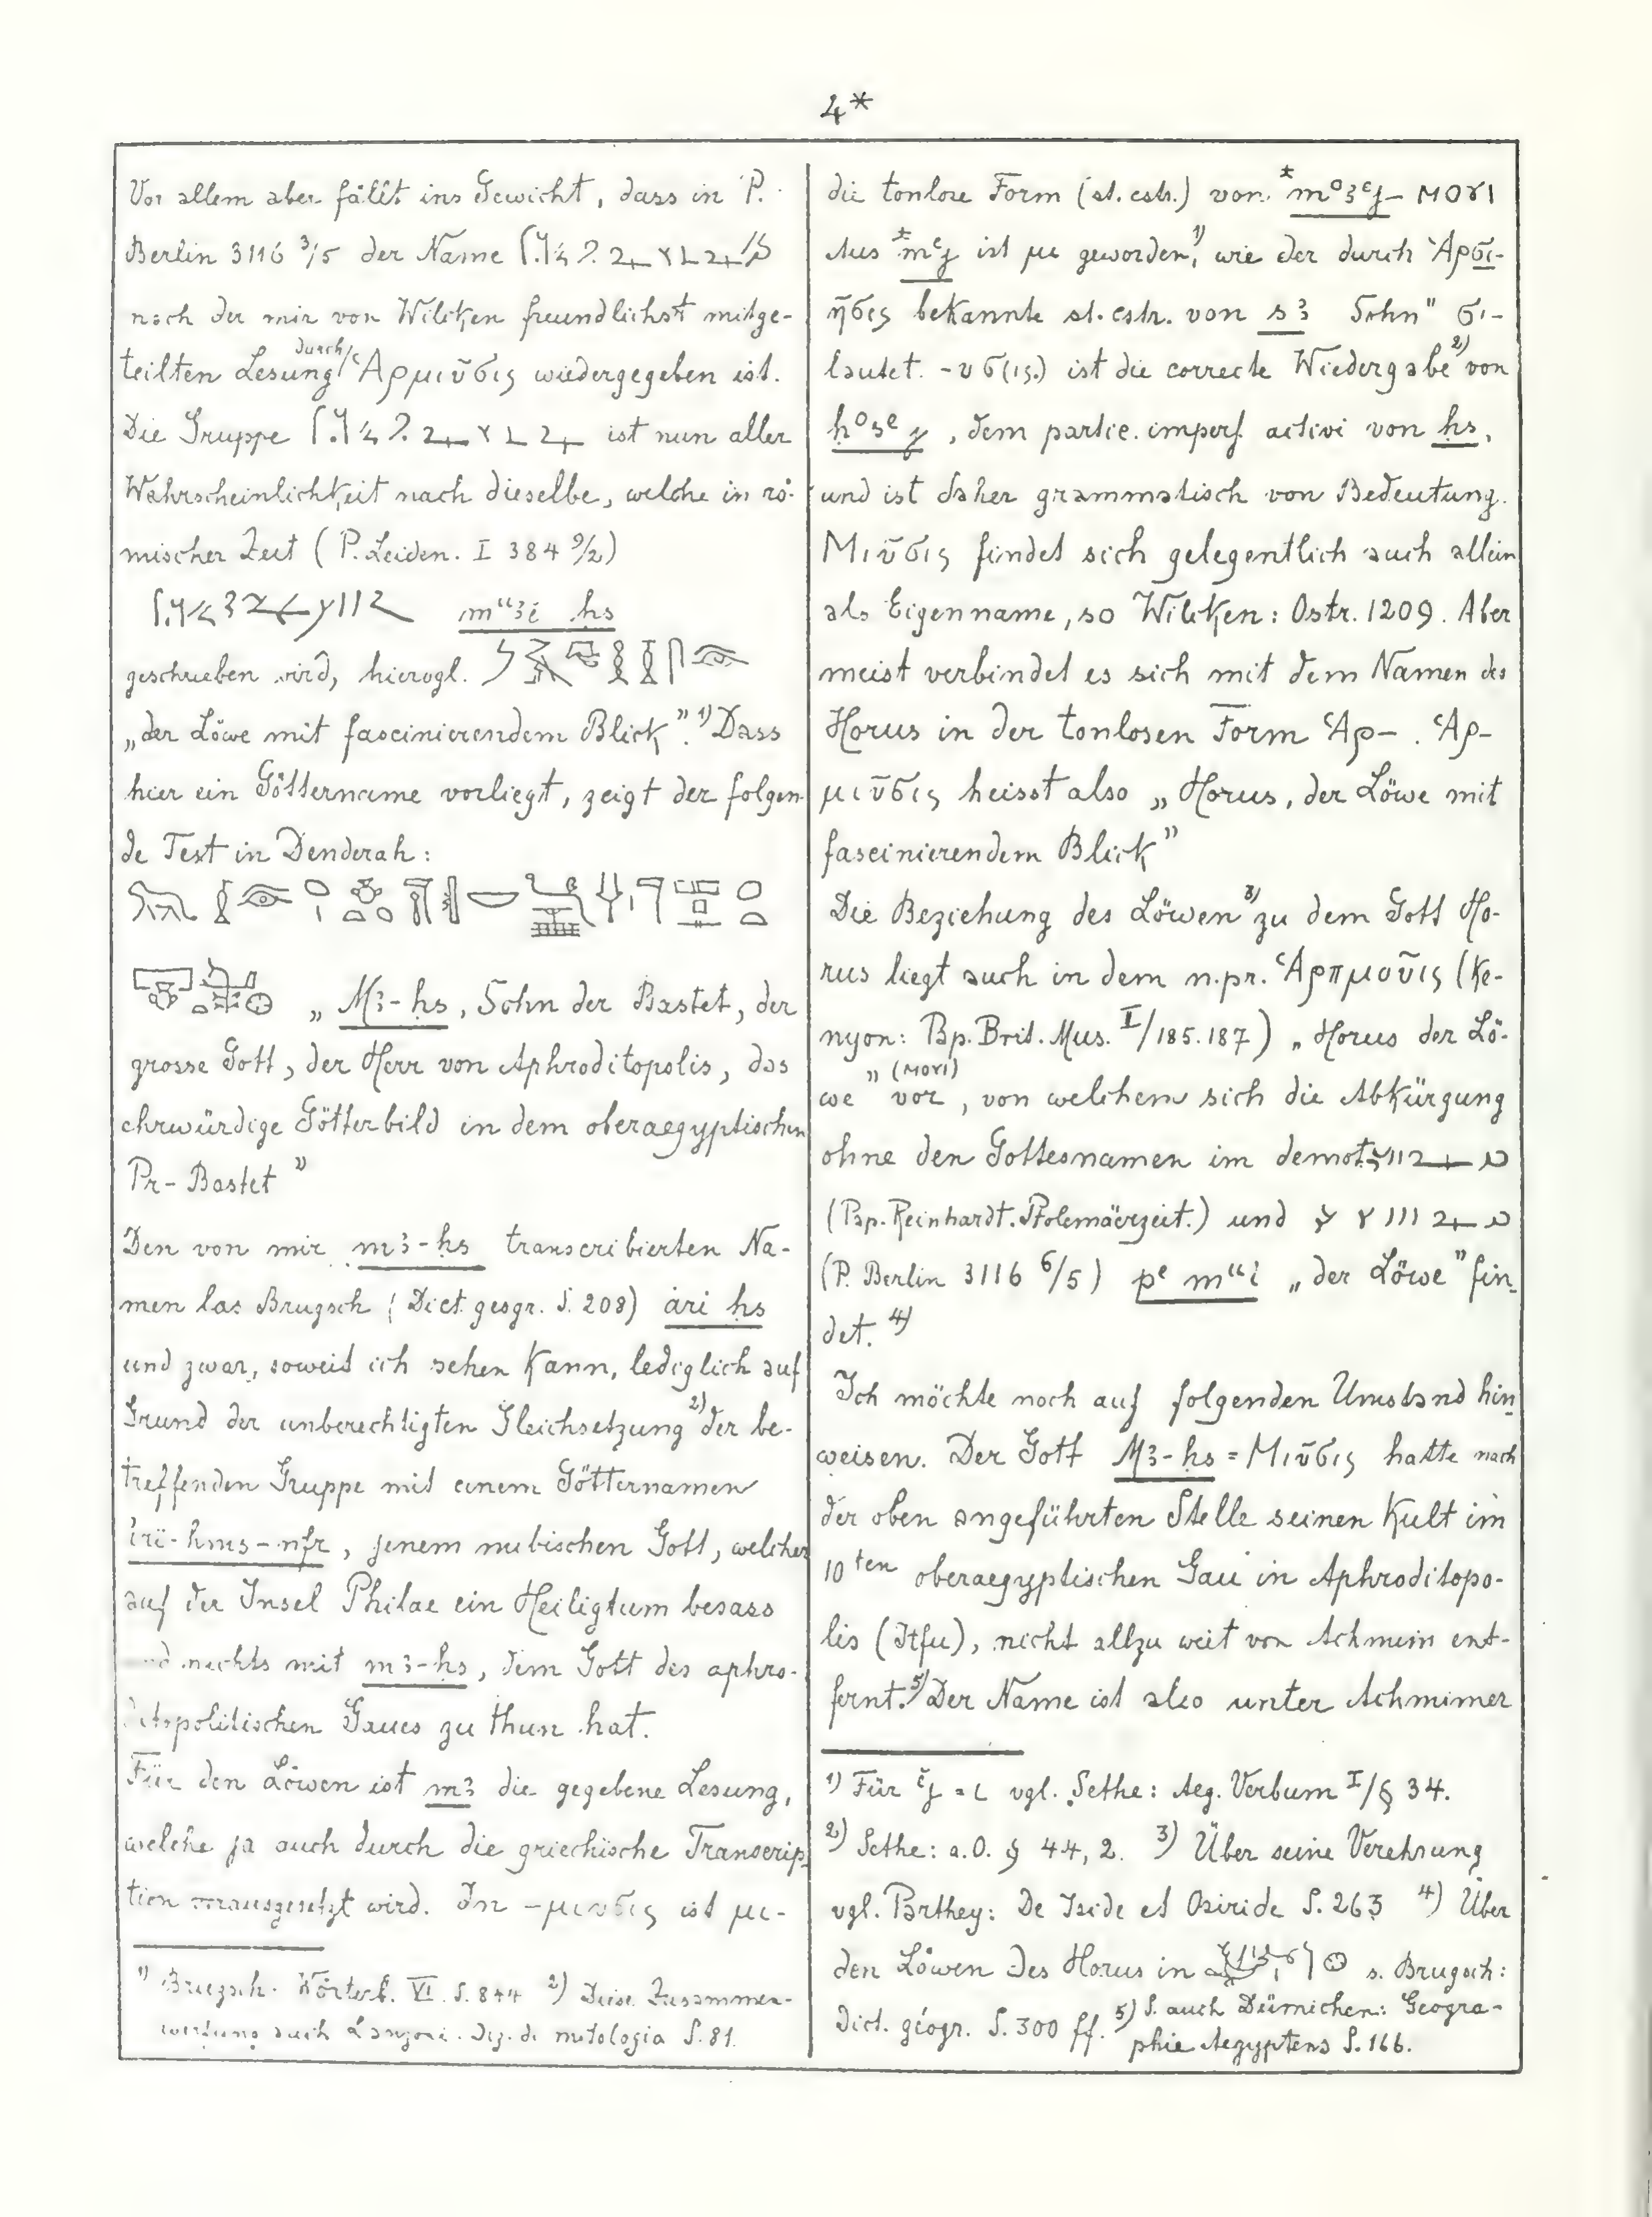 4*
Vor allem aber fällt ins Gewicht, dass in P.
Berlin 3116 3/5 der Name
nach der mir von Wilcken freundlichst mitge-
teilten Lesung durch Ἁρμινῦσις wiedergegeben ist.
Die Gruppe ist nun aller
Wahrscheinlichkeit nach dieselbe, welche in rö-
mischer Zeit (P. Leiden. I 384 9/2)
hs
geschrieben wird, hierogl.
„der Löwe mit fascinierendem Blick".1) Dass
hier ein Göttername vorliegt, zeigt der folgen-
de Text in Denderah:
„M3-ḥs, Sohn der Bastet, der
grosse Gott, der Herr von Aphroditopolis, das
ehrwürdige Götterbild in dem oberaegyptischen
Pr-Bastet"
Den von mir m3-ḥs transcribierten Na-
men las Brugsch (Dict. geogr. S. 208) ȧri ḥs
und zwar, soweit ich sehen kann, lediglich auf
Grund der unberechtigten Gleichsetzung2) der be-
treffenden Gruppe mit einem Götternamen
ḥms-nfr, jenem nubischen Gott, welcher
auf der Insel Philae ein Heiligtum besass
nichts mit m3-ḥs, dem Gott des aphro-
ditopolitischen Gaues zu thun hat.
Für den Löwen ist m3 die gegebene Lesung,
welche ja auch durch die griechische Transcrip-
tion vorausgesetzt wird. In -μινσις ist μι-
1) Brugsch. Wörterb. VI. S. 844 2) Diese Zusammen-
auch Lanzone. Diz. di mitologia S. 81.
die tonlose Form (st. cstr.) von *mo3ej- ⲙⲟⲩⲓ
Aus *mej ist μι geworden,1) wie der durch Ἁρσι-
ῆσις bekannte st. cstr. von s3 Sohn" σι-
lautet. -υσ(ις) ist die correcte Wiedergabe2) von
ḥosej, dem partic. imperf. activi von ḥs,
und ist daher grammatisch von Bedeutung.
Μιῦσις findet sich gelegentlich auch allein
als Eigenname, so Wilcken: Ostr. 1209. Aber
meist verbindet es sich mit dem Namen des
Horus in der tonlosen Form Ἁρ-. Ἁρ-
μιῦσις heisst also „Horus, der Löwe mit
fascinierendem Blick"
Die Beziehung des Löwen3) zu dem Gott Ho-
rus liegt auch in dem n.pr. Ἁρπμοῦις (Ke-
nyon: Pap. Brit. Mus. I/185.187) „Horus der Lö-
we" (ⲙⲟⲩⲓ) vor, von welchem sich die Abkürzung
ohne den Gottesnamen im demot.
(Pap. Reinhardt. Ptolemäerzeit.) und
(P. Berlin 3116 6/5) pe mui „der Löwe" fin-
det.4)
Ich möchte noch auf folgenden Umstand hin-
weisen. Der Gott M3-ḥs = Μιῦσις hatte nach
der oben angeführten Stelle seinen Kult im
10ten oberaegyptischen Gau in Aphroditopo-
lis (Itfu), nicht allzu weit von Achmim ent-
fernt.5) Der Name ist also unter Achmimer
1) Für ĕj = ι vgl. Sethe: Aeg. Verbum I/§ 34.
2) Sethe: a.O. § 44, 2. 3) Über seine Verehrung
vgl. Parthey: De Iside et Osiride S. 263 4) Über
den Löwen des Horus in s. Brugsch:
Dict. géogr. S. 300 ff. 5) S. auch Dümichen: Geogra-
phie Aegyptens S. 166.